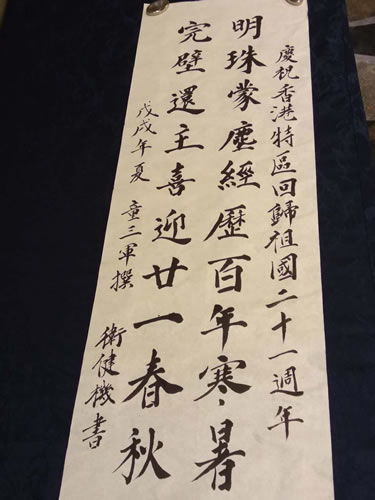 慶祝香港特區回歸祖國二十一週年
明珠蒙塵經歷百年寒暑
完璧還主喜迎廿一春秋
戊戌年夏 童三軍撰
衛健機書